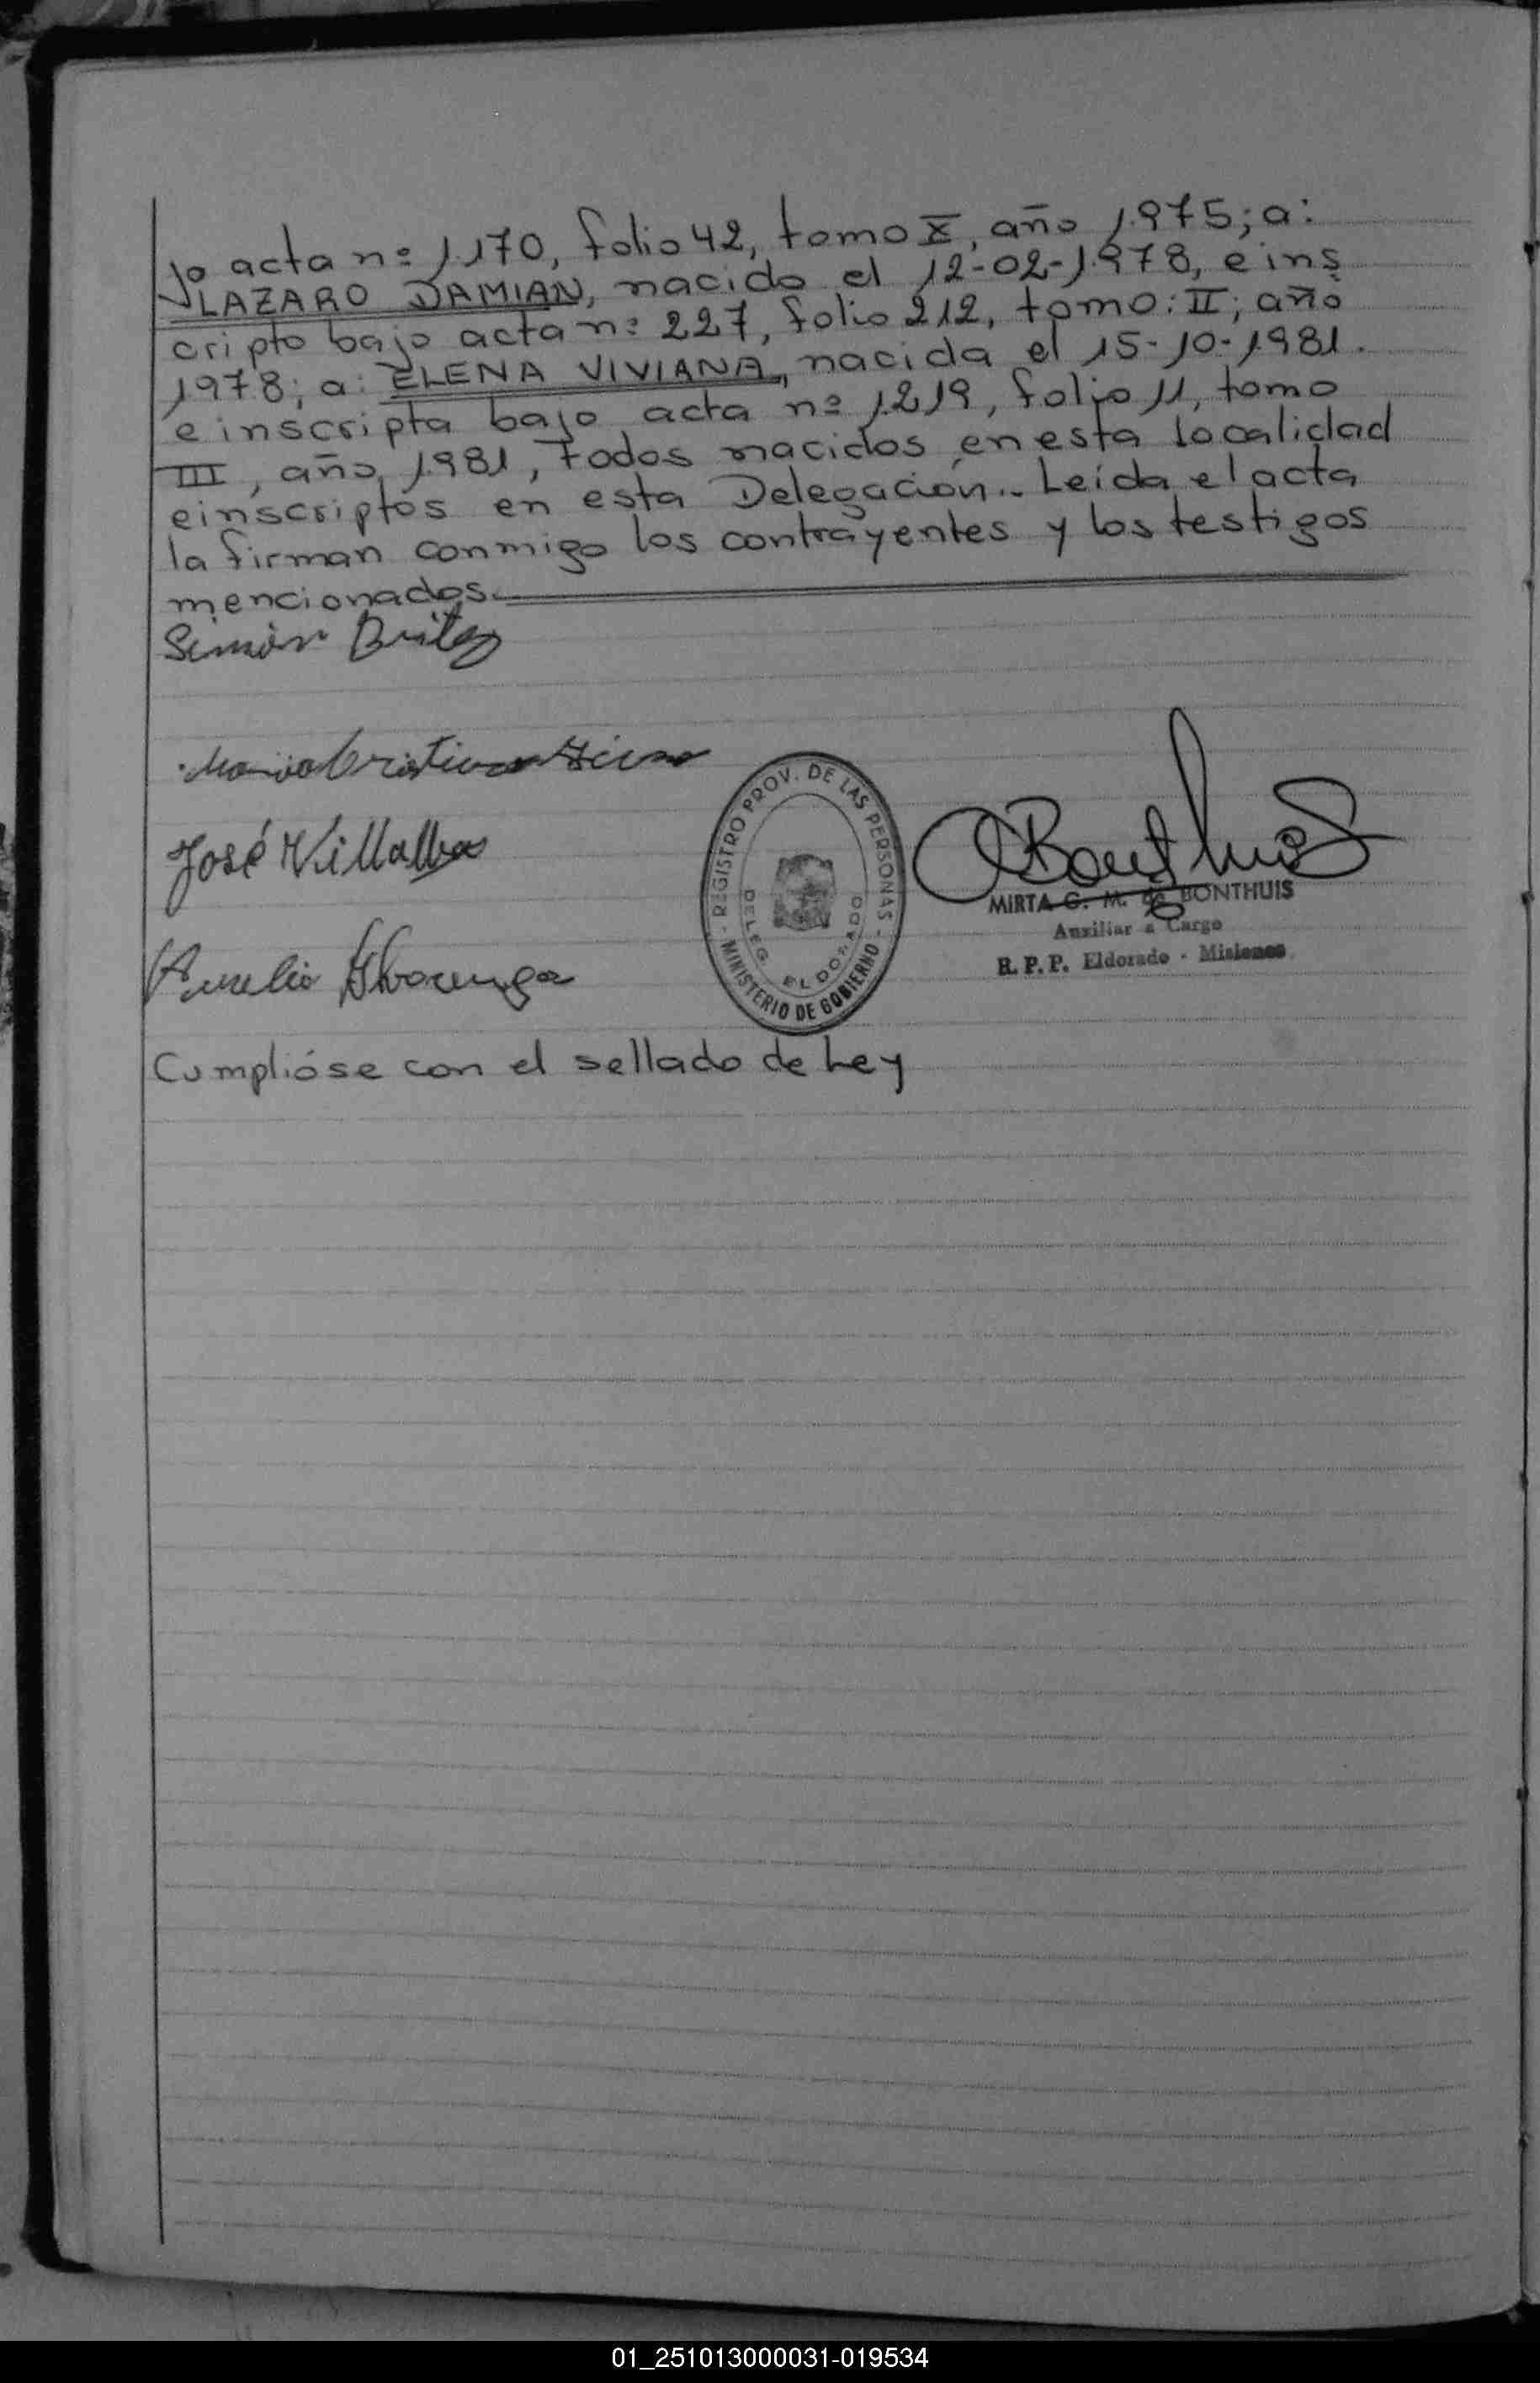 jo acta nº 1.170, folio 42, tomo X, año 1.975; a:
LAZARO DAMIAN, nacido el 12-02-1.978, e ins
cripto bajo acta nº 227, folio 212, tomo: II; año
1.978; a: ELENA VIVIANA, nacida el 15-10-1.981.
e inscripta bajo acta nº 1.219, folio 11, tomo
III, año 1.981, todos nacidos en esta localidad
e inscriptos en esta Delegación.- Leída el acta
la firman conmigo los contrayentes y los testigos
mencionados.
Simón Britez
Maria Cristina
José Villalba
Aurelio
REGISTRO PROV. DE LAS PERSONAS
- MINISTERIO DE GOBIERNO -
DELEG. ELDORADO
MIRTA G. M. de BONTHUIS
Auxiliar a Cargo
R. P. P. Eldorado - Misiones
Cumplióse con el sellado de Ley
01_251013000031-019534